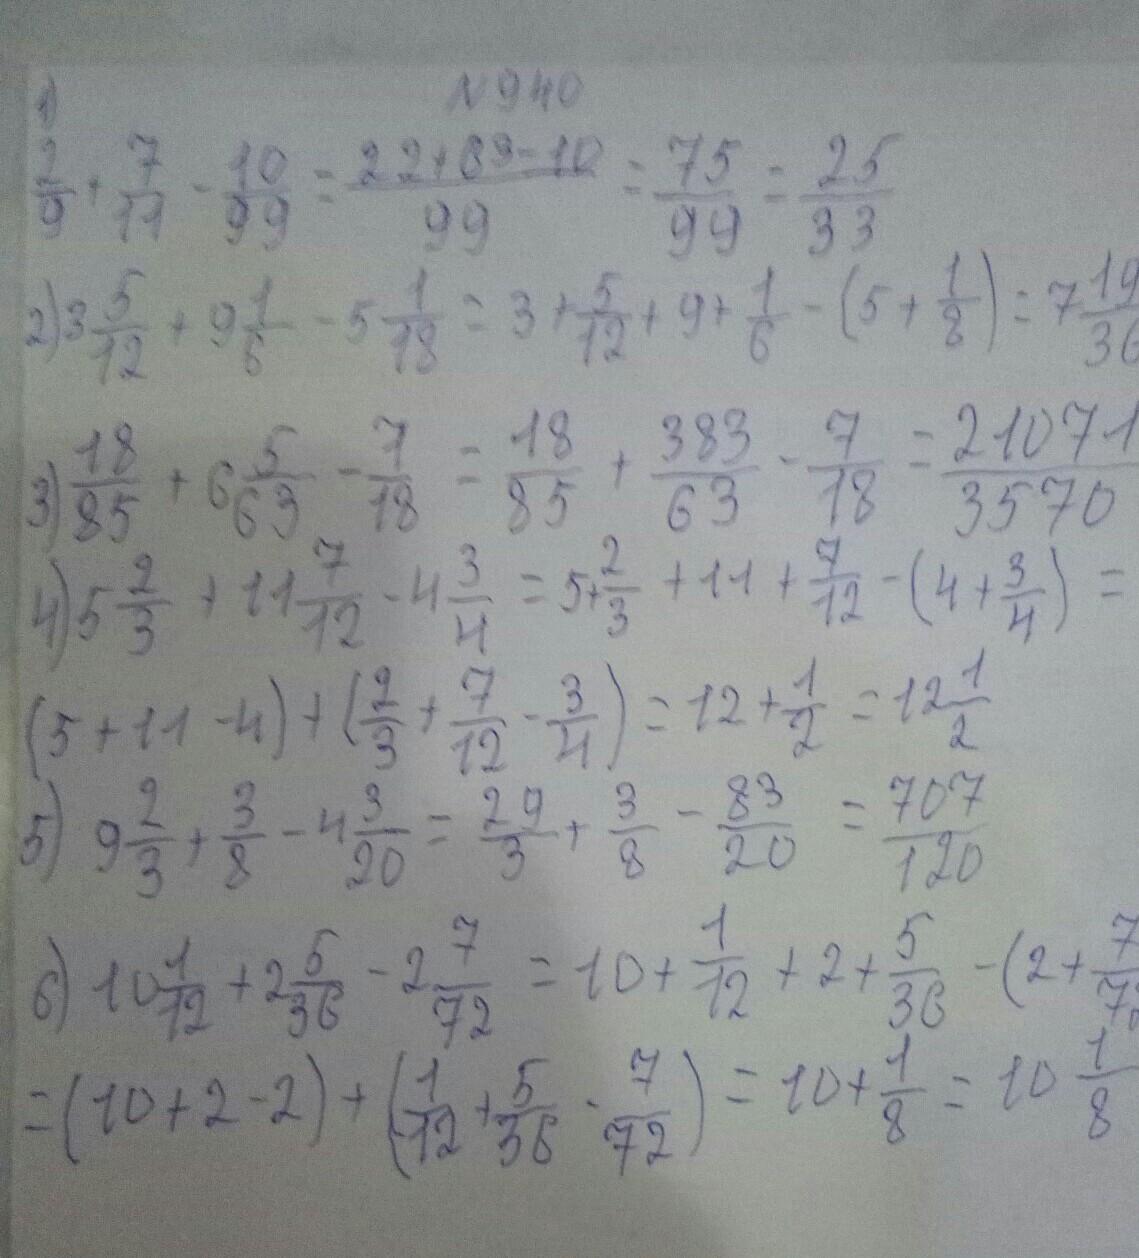 N 940
1)
2/9 + 7/11 - 10/99 = 22+63-10/99 = 75/99 = 25/33
2) 3 5/12 + 9 1/6 - 5 1/18 = 3 + 5/12 + 9 + 1/6 - (5 + 1/8) = 7 19/36
3) 18/85 + 6 5/63 - 7/18 = 18/85 + 383/63 - 7/18 = 21071/3570
4) 5 2/3 + 11 7/12 - 4 3/4 = 5 + 2/3 + 11 + 7/12 - (4 + 3/4) =
(5 + 11 - 4) + (2/3 + 7/12 - 3/4) = 12 + 1/2 = 12 1/2
5) 9 2/3 + 3/8 - 4 3/20 = 29/3 + 3/8 - 83/20 = 707/120
6) 10 1/12 + 2 5/36 - 2 7/72 = 10 + 1/12 + 2 + 5/36 - (2 + 7/72
= (10 + 2 - 2) + (1/12 + 5/36 - 7/72) = 10 + 1/8 = 10 1/8